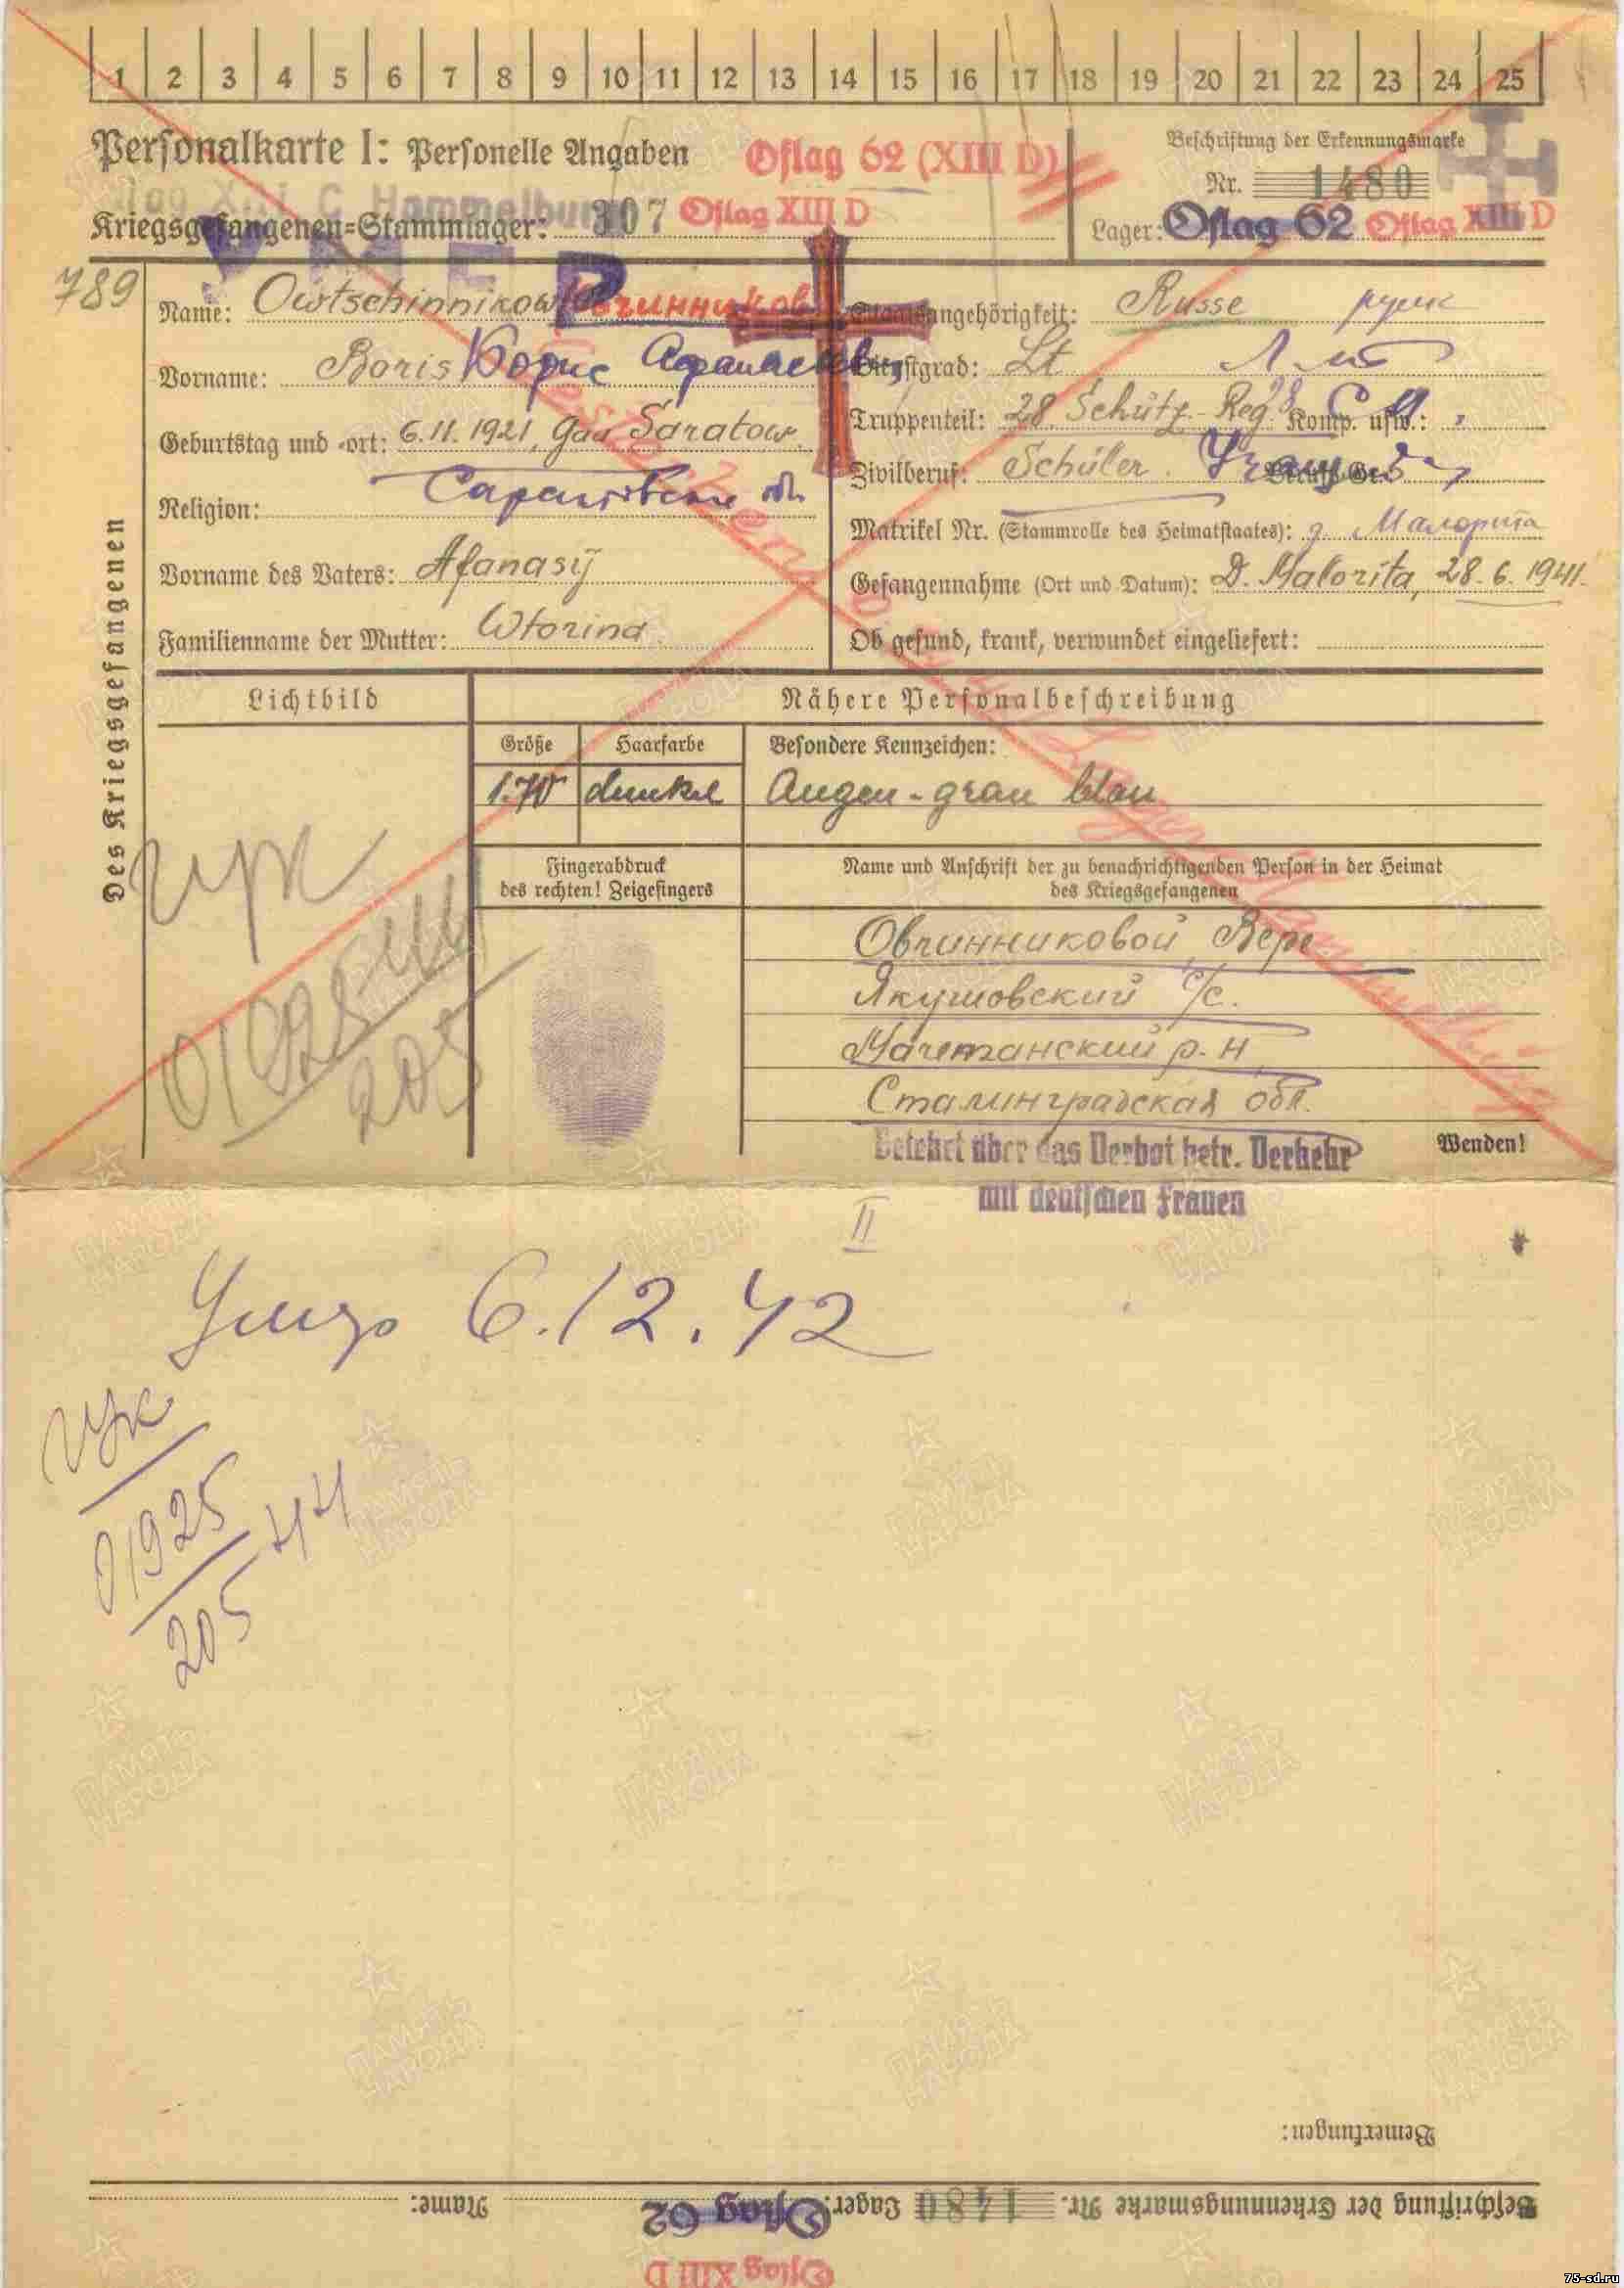 1 2 3 4 5 6 7 8 9 10 11 12 13 14 15 16 17 18 19 20 21 22 23 24 25
Personalkarte I: Personelle Angaben
Oflag 62 (XIII D)
Beschriftung der Erkennungsmarke
Nr. 1480
Kriegsgefangenen-Stammlager: 307 Oflag XIII D
Lager: Oflag 62 Oflag XIII D
Hammelburg
УМЕР
789
Name: Owtschinnikow Овчинников
Staatsangehörigkeit: Russe русск
Vorname: Boris Борис Афанасьевич
Dienstgrad: Lt Л-нт
Geburtstag und -ort: 6.11.1921, Gau Saratow.
Truppenteil: 28. Schütz-Reg. Komp. usw.:
Саратовская обл
Zivilberuf: Schüler. Berufs-Gr.
Religion:
Matrikel Nr. (Stammrolle des Heimatstaates): д. Малорита
Vorname des Vaters: Afanasij
Gefangennahme (Ort und Datum): D. Malorita, 28.6.1941.
Familienname der Mutter: Wtorina
Ob gesund, krank, verwundet eingeliefert:
Des Kriegsgefangenen
Lichtbild
Nähere Personalbeschreibung
Größe Haarfarbe Besondere Kennzeichen:
1.70 dunkel Augen - grau blau
Fingerabdruck
des rechten! Zeigefingers
Name und Anschrift der zu benachrichtigenden Person in der Heimat
des Kriegsgefangenen
Овчинниковой Вере
Якушовский с/с.
р.н
Сталинградская обл.
гук
01925 44
205
Belehrt über das Verbot betr. Verkehr
mit deutschen Frauen
Wenden!
II
Умер 6.12.42
гук
01925 44
205
Bemerkungen:
Beschriftung der Erkennungsmarke Nr. 1480 Lager: Oflag 62 Name:
Oflag XIII D
ПАМЯТЬ НАРОДА
75-sd.ru